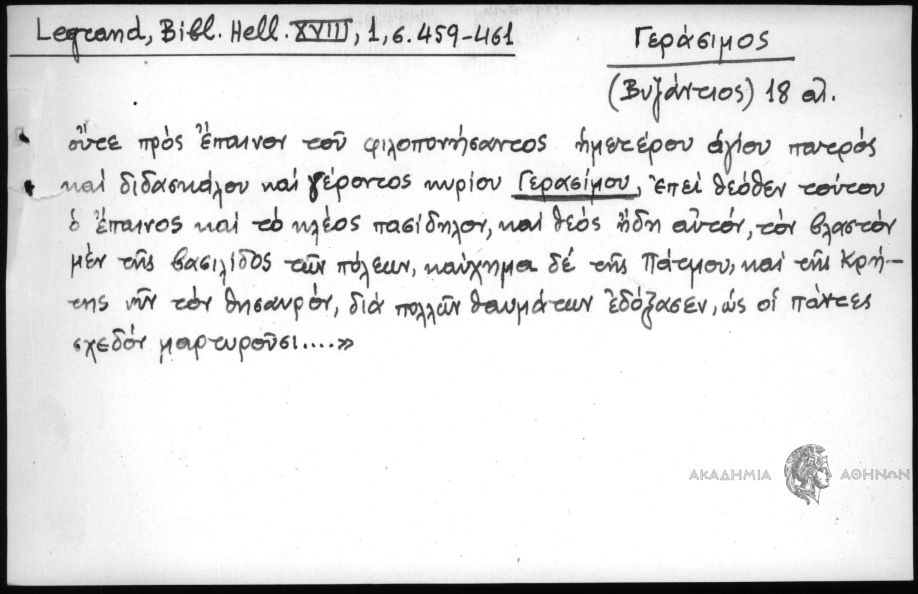 Legrand, Bibl. Hell. XVIII, 1, σ. 459-461
Γεράσιμος
(Βυζάντιος) 18 αἰ.
οὔτε πρὸς ἔπαινον τοῦ φιλοπονήσαντος ἡμετέρου ἁγίου πατρός
καί διδασκάλου καί γέροντος κυρίου Γερασίμου, ἐπεί θεόθεν τούτου
ὁ ἔπαινος καί τό κλέος πασίδηλον, καί θεός ἤδη αὐτόν, τόν βλαστόν
μέν τῆς βασιλίδος τῶν πόλεων, καύχημα δέ τῆς Πάτμου, καί τῆς Κρή-
της νῦν τόν θησαυρόν, διά πολλῶν θαυμάτων ἐδόξασεν, ὡς οἱ πάντες
σχεδόν μαρτυροῦσι....»
ΑΚΑΔΗΜΙΑ ΑΘΗΝΩΝ